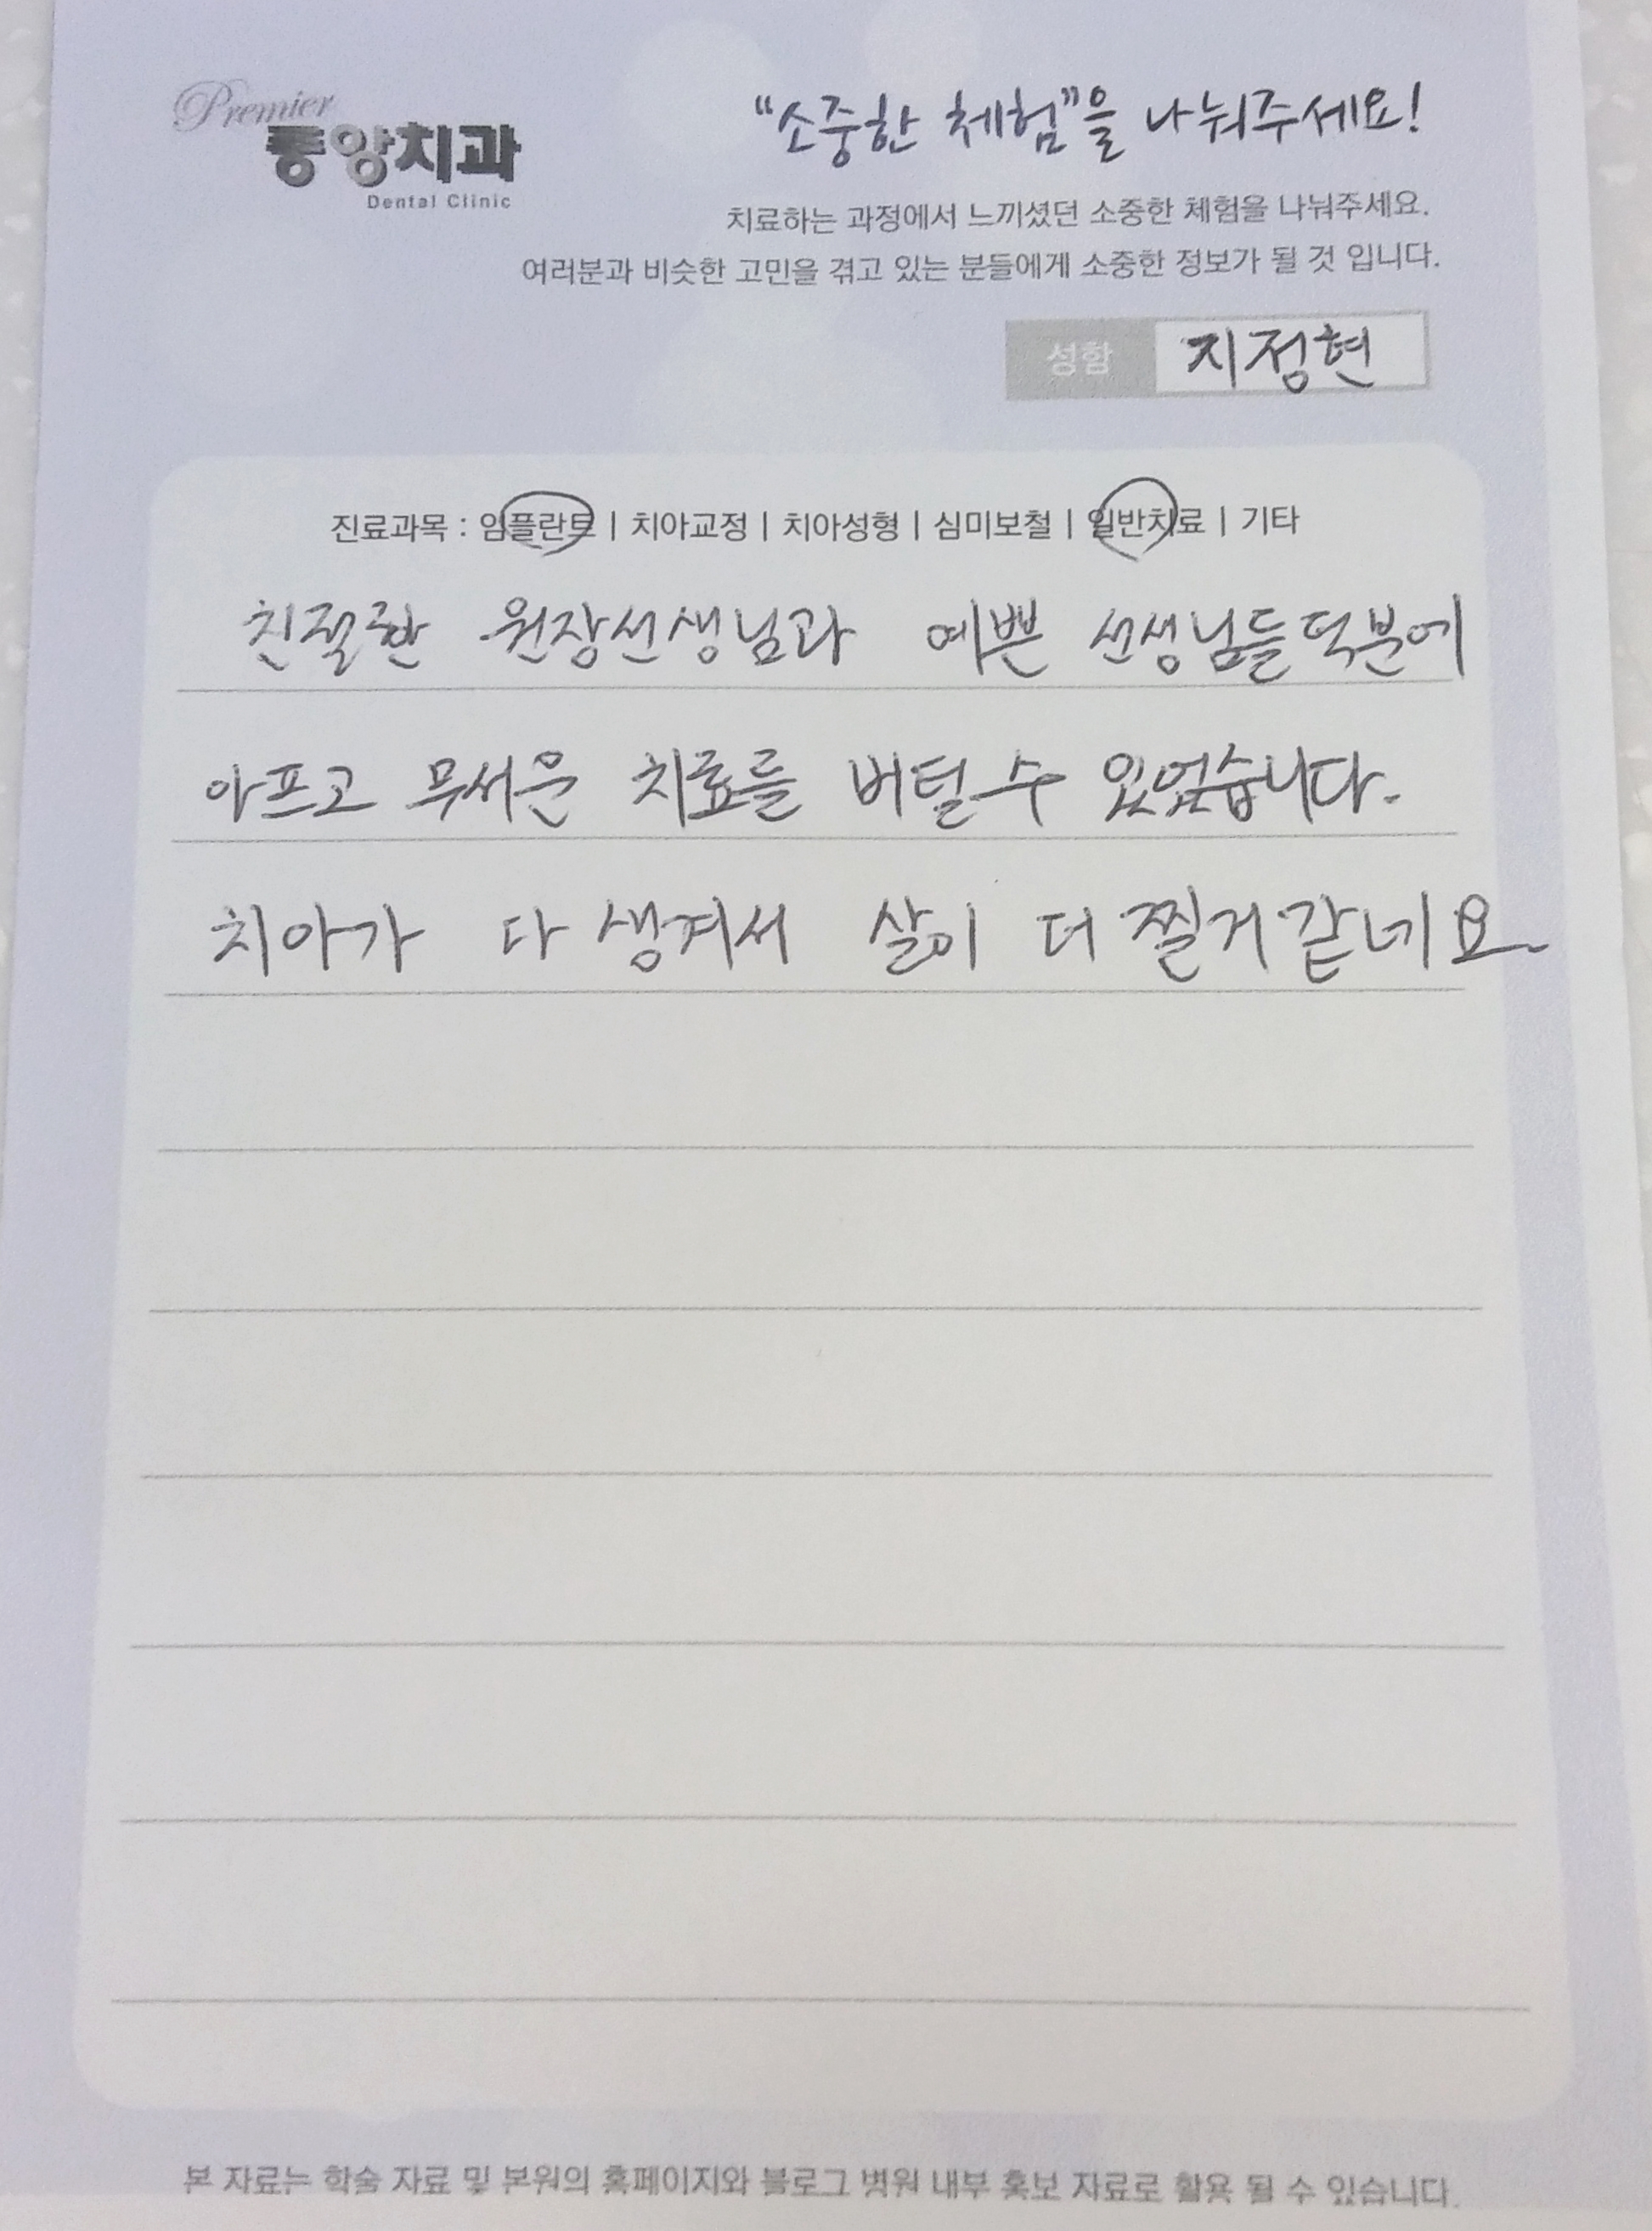 Premier
중앙치과
Dental Clinic
"소중한 체험"을 나눠주세요!
치료하는 과정에서 느끼셨던 소중한 체험을 나눠주세요.
여러분과 비슷한 고민을 겪고 있는 분들에게 소중한 정보가 될 것 입니다.
성함 지정현
진료과목 : 임플란트 | 치아교정 | 치아성형 | 심미보철 | 일반치료 | 기타
친절한 원장선생님과 예쁜 선생님들덕분에
아프고 무서운 치료를 버틸 수 있었습니다.
치아가 다 생겨서 살이 더 찔거같네요
본 자료는 학술 자료 및 본원의 홈페이지와 블로그 병원 내부 홍보 자료로 활용 될 수 있습니다.